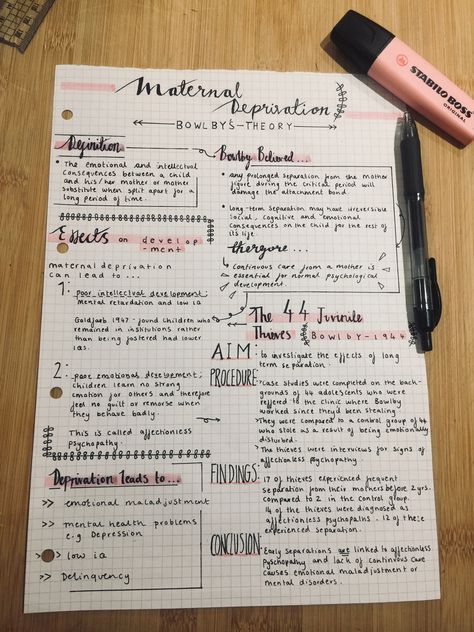 Maternal
Deprivation
BOWLBY'S-THEORY
Definition
• The emotional and intellectual
consequences between a child
and his/her mother or mother
substitute when split apart for a
long period of time.
Bowlby Believed...
• any prolonged separation from the mother
figure during the critical period will
damage the attachment bond.
• long-term separation may have irreversible
social, cognitive and emotional
consequences on the child for the rest
of its life.
therefore...
Continuous care from a mother is
essential for normal psychological
development.
Effects on develop-
-ment
maternal deprivation
can lead to...
1: poor intellectual development;
mental retardation and low iq.
Goldfarb 1947 - found children who
remained in institutions rather
than being fostered had lower
iqs.
2: poor emotional development;
children learn no strong
emotion for others and therefore
feel no guilt or remorse when
they behave badly.
This is called affectionless
psychopathy.
Deprivation leads to...
>> emotional maladjustment
>> mental health problems
e.g. Depression
>> Low iq
>> Delinquency
The 44 Juvinile
Thieves BOWLBY-1944
AIM: • to investigate the effects of long
term separation.
PROCEDURE: • case studies were completed on the back-
grounds of 44 adolescents who were
reffered to the clinic where Bowlby
worked since they'd been stealing.
• They were compared to a control group of 44
who stole as a result of being emotionally
disturbed.
• The thieves were interviews for signs of
affectionless psycopathy.
FINDINGS: 17 of thieves experienced frequent
separation from their mothers before 2 yrs.
compared to 2 in the control group.
14 of the thieves were diagnosed as
affectionless psychopaths. 12 of these
experienced separation.
CONCLUSION: Early separations are linked to affectionless
Pyschopathy and lack of continuous care
causes emotional maladjustment or
mental disorders.
STABILO BOSS
ORIGINAL